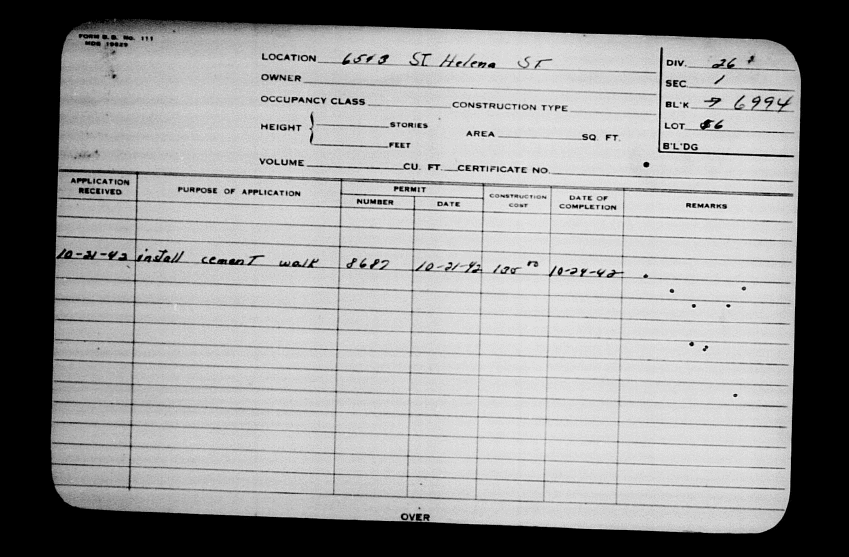 FORM B.B. No. 111
MDS 19629
LOCATION 6513 ST Helena ST
OWNER
OCCUPANCY CLASS CONSTRUCTION TYPE
HEIGHT { STORIES
FEET
AREA SQ. FT.
VOLUME CU. FT. CERTIFICATE NO.
DIV. 26
SEC 1
BL'K 7 6994
LOT 56
B'L'DG
APPLICATION RECEIVED PURPOSE OF APPLICATION PERMIT NUMBER DATE CONSTRUCTION COST DATE OF COMPLETION REMARKS
10-21-42 install cement walk 8687 10-21-42 10-24-42
OVER